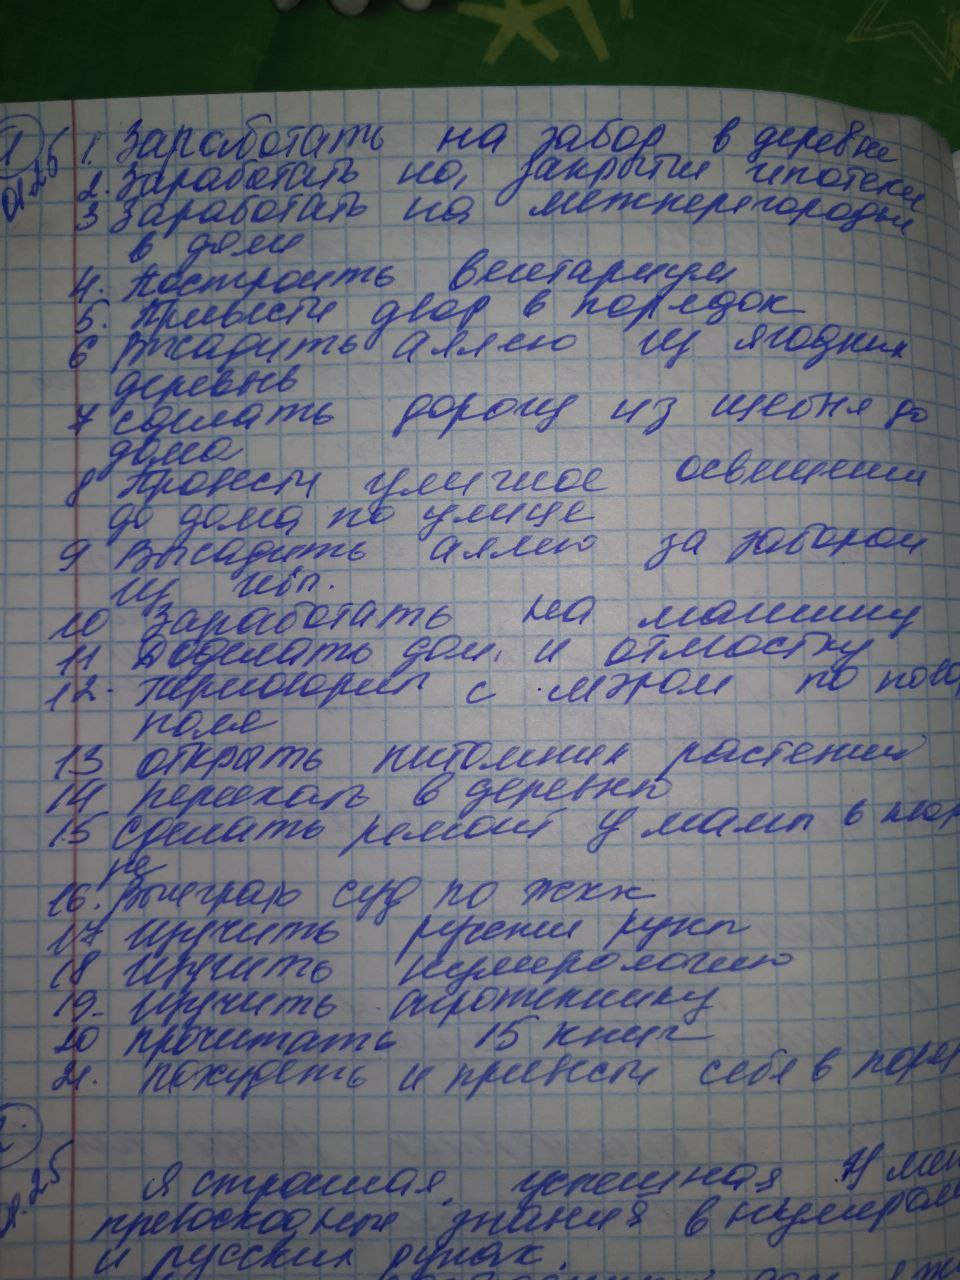 1
01.25
1. Заработать на забор в деревне
2. Заработать на закрытие ипотеки
3 Заработать на межперегородки
в доме
4. Построить
5. Привести двор в порядок
6 Высадить аллею из ягодных
деревьев
7 сделать дорогу из щебня до
дома
8 Провести уличное освещение
до дома по улице
9 Высадить аллею за забором
из
10 Заработать на машину
11 Доделать дом и отмостку
12. переговоры с мэром по пово
поля
13 открыть питомник растений
14 переехать в деревню
15 сделать ремонт у мамы в
16. Выиграю суд по жкх
17 изучить руские руны
18 изучить нумерологию
19. изучить агротехнику
20 прочитать 15 книг
21. похудеть и привести себя в поря
.25
Я стройная, успешная. У мен
превосходные знания в нумерол
и русских рунах.